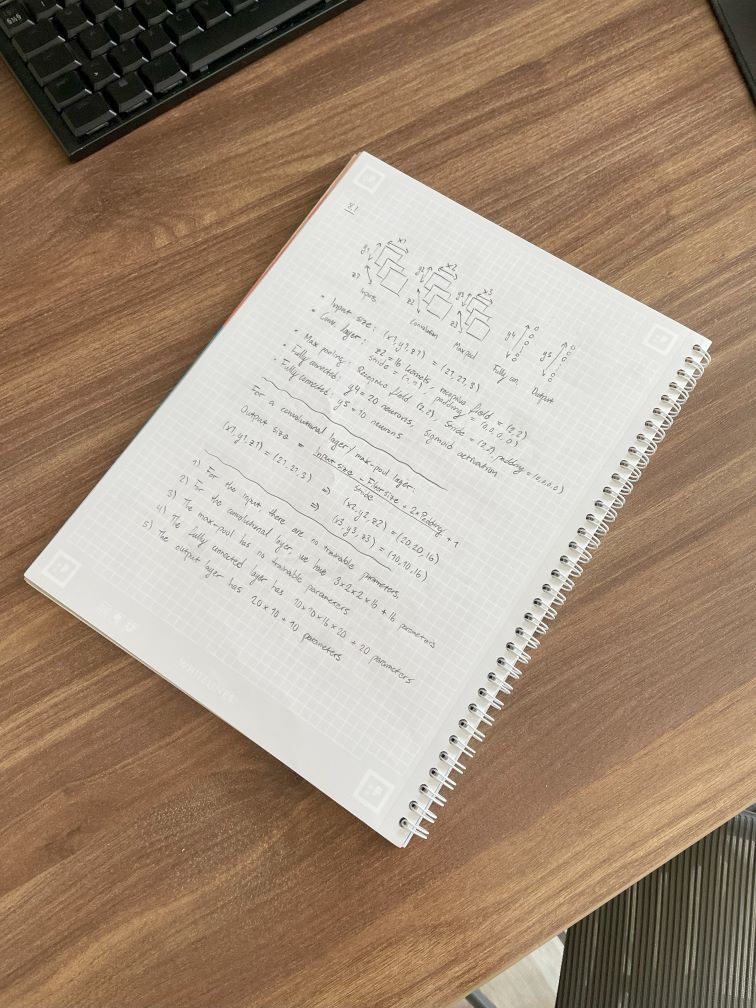 8.1
x1
y1
z1
Inputs
x2
y2
z2
Convolution
x3
y3
z3
Maxpool
y4
Fully con
y5
Output
• Input size: (x1,y1,z1) = (21,21,3)
• Conv. layer: z2 = 16 kernels, receptive field = (2,2)
stride = (1,1), padding = (0,0,0,0)
• Max pooling: Receptive field (2,2), stride = (2,2), padding = (0,0,0,0)
• Fully connected: y4 = 20 neurons, sigmoid activation
• Fully connected: y5 = 10 neurons
For a convolutional layer/max-pool layer:
Output size = Input size - Filter size + 2*Padding / Stride + 1
(x1,y1,z1) = (21,21,3) ⇒ (x2,y2,z2) = (20,20,16)
⇒ (x3,y3,z3) = (10,10,16)
1) For the input there are no trainable parameters,
2) For the convolutional layer, we have 3×2×2×16 + 16 parameters
3) The max-pool has no trainable parameters
4) The fully connected layer has 10×10×16×20 + 20 parameters
5) The output layer has 20×10 + 10 parameters